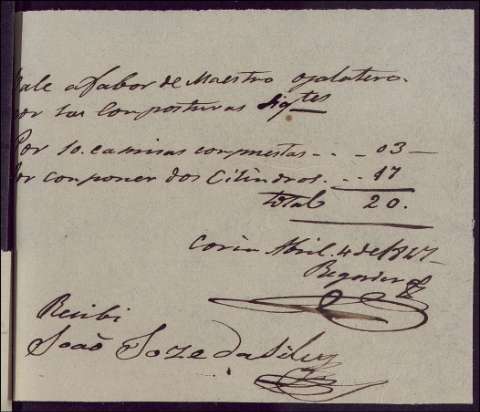 Vale a fabor de Maestro ojalatero.
Por las composturas sig.tes
Por 10. camisas compuestas . . - 03 —
Por componer dos Cilindros. . . 17
total 20.
Coria Abril. 4 de 1847
Recibi
João Joze da Silva